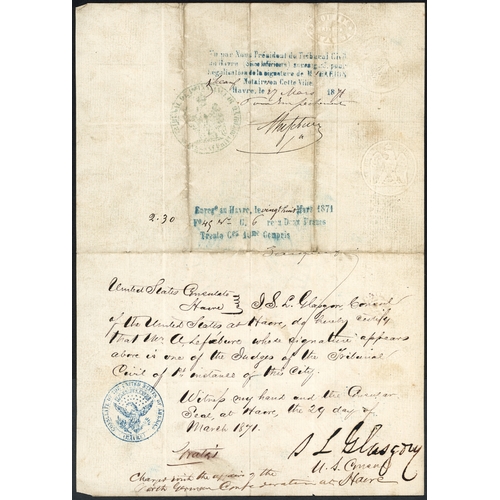 Vu par Nous Président du Tribunal Civil
du Havre (Seine Inférieure) pour
légalisation de la signature de M.
Notaire en Cette Ville
Havre, le 27 Mars 1871
Enregé au Havre, le vingt huit Mars 1871
Fo 45 No C. 6 reçu Deux Francs
Trente Ces 10me Compris
2.30
United States Consulate
Havre I S. L. Glasgow Consul
of the United States at Havre, do hereby certify
that Mr. A. Lefebure whose signature appears
above is one of the Judges of the Tribunal
Civil of 1st instance of this City.
Witness my hand and the Consular
Seal, at Havre, the 29 day of
March 1871.
CONSULATE OF THE UNITED STATES OF AMERICA
HAVRE
Gratis
S L Glasgow
U. S. Consul
Charged with the affairs of the
North German Confederation at Havre